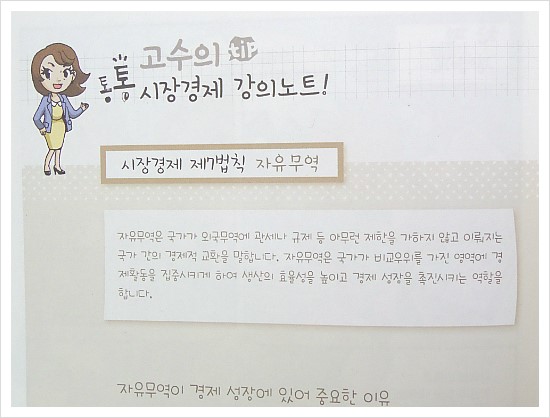 고수의 비
통통 시장경제 강의노트!
시장경제 제7법칙 자유무역
자유무역은 국가가 외국무역에 관세나 규제 등 아무런 제한을 가하지 않고 이뤄지는
국가 간의 경제적 교환을 말합니다. 자유무역은 국가가 비교우위를 가진 영역에 경
제활동을 집중시키게 하여 생산의 효율성을 높이고 경제 성장을 촉진시키는 역할을
합니다.
자유무역이 경제 성장에 있어 중요한 이유